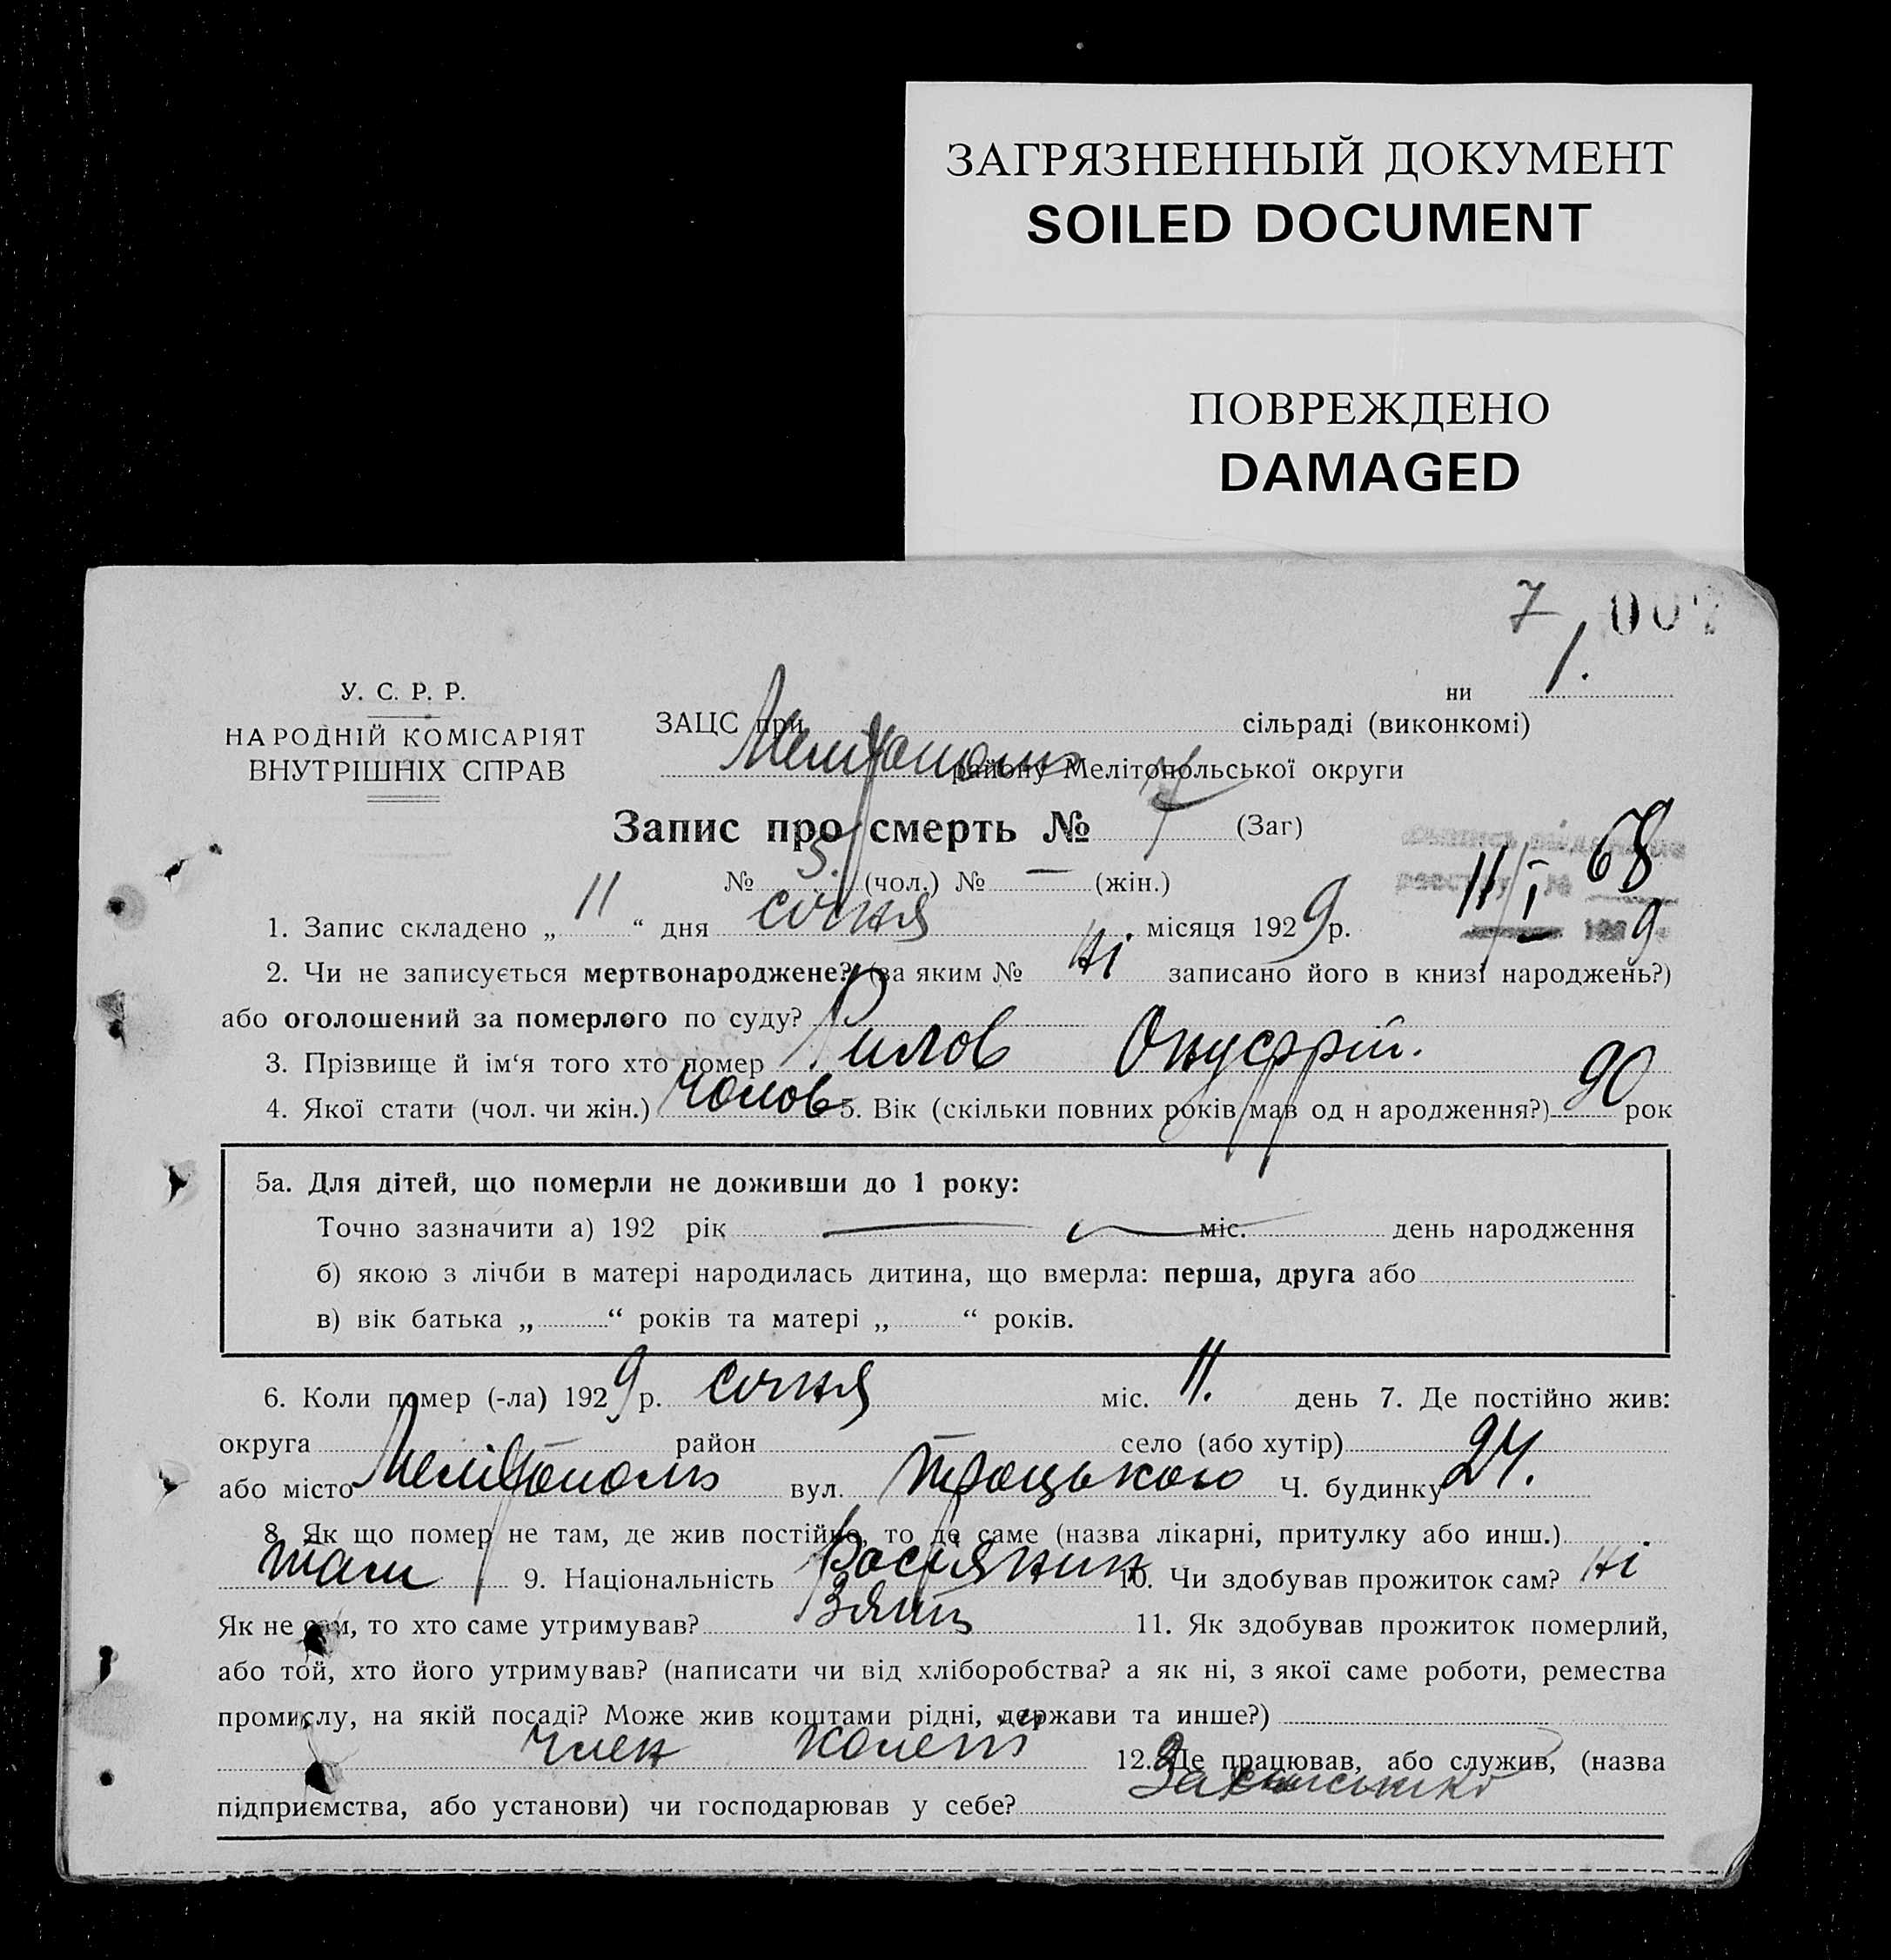 ЗАГРЯЗНЕННЫЙ ДОКУМЕНТ
SOILED DOCUMENT
ПОВРЕЖДЕНО
DAMAGED
7 007
1.
ни
У. С. Р. Р.
НАРОДНІЙ КОМІСАРІЯТ
ВНУТРІШНІХ СПРАВ
ЗАЦС при сільраді (виконкомі)
Мелітополь району Мелітопольської округи
Запис про смерть № 7 (Заг)
68
№ 5. (чол.) № — (жін.)
11/I 1929
1. Запис складено „ 11 “ дня січня місяця 1929 р.
2. Чи не записується мертвонароджене? (за яким № ні записано його в книзі народжень?)
або оголошений за померлого по суду?
3. Прізвище й ім‘я того хто помер Рилов Онуфрій.
4. Якої стати (чол. чи жін.) чолов 5. Вік (скільки повних років мав од н ародження?) 90 рок
5а. Для дітей, що померли не доживши до 1 року:
Точно зазначити а) 192 рік міс. день народження
б) якою з лічби в матері народилась дитина, що вмерла: перша, друга або
в) вік батька „ “ років та матері „ “ років.
6. Коли помер (-ла) 1929 р. січня міс. 11. день 7. Де постійно жив:
округа район село (або хутір)
або місто Мелітополь вул. Троцького Ч. будинку 24.
8. Як що помер не там, де жив постійно, то де саме (назва лікарні, притулку або инш.)
там 9. Національність Росіянин 10. Чи здобував прожиток сам? ні
Як не сам, то хто саме утримував? Зять 11. Як здобував прожиток померлий,
або той, хто його утримував? (написати чи від хліборобства? а як ні, з якої саме роботи, ремества
промислу, на якій посаді? Може жив коштами рідні, держави та инше?)
член 12. Де працював, або служив, (назва
підприємства, або установи) чи господарював у себе?